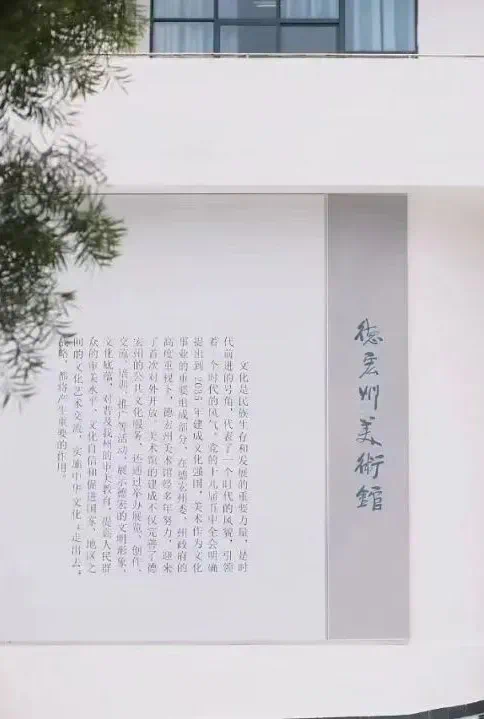 德宏州美術館
文化是民族生存和发展的重要力量，是时
代前进的号角，代表了一个时代的风貌，引领
着一个时代的风气。党的十九届五中全会明确
提出到2035年建成文化强国，美术作为文化
事业的重要组成部分，在德宏州委、州政府的
高度重视下，德宏州美术馆经多年努力，迎来
了首次对外开放。美术馆的建成不仅完善了德
宏州的公共文化服务，还通过举办展览、创作、
交流、培训、推广等活动，展示德宏的文明形象、
文化底蕴，对普及我州的审美教育，提高人民群
众的审美水平、文化自信和促进国家、地区之
间的文化艺术交流，实施中华文化“走出去”
战略，都将产生重要的作用。